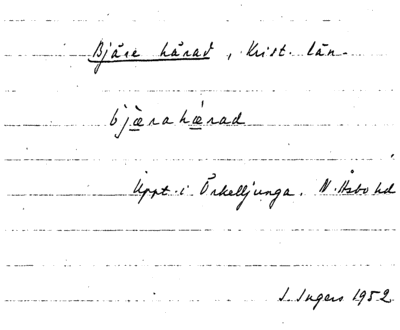 Bjäre härad, Krist. län.
bjæ̀rahǽrad
Uppt. i Örkelljunga. N. Åsbo hd
I. Ingers 1952